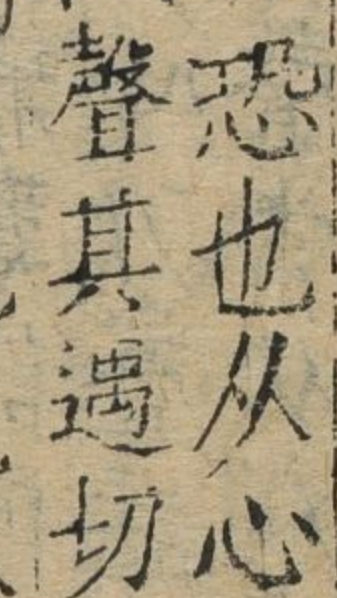 恐也从心
聲其遇切